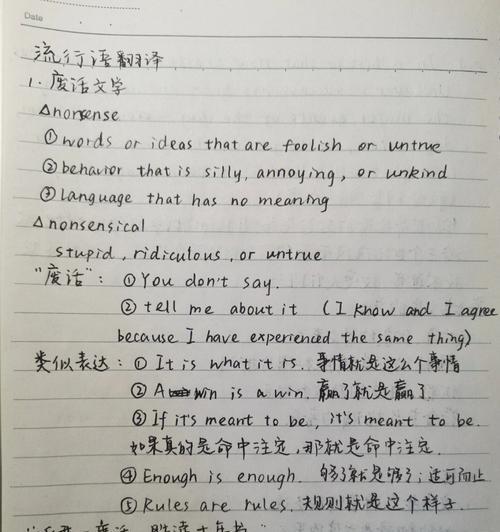 Date
流行语翻译
1. 废话文学
△nonsense
①words or ideas that are foolish or untrue
②behavior that is silly, annoying, or unkind
③language that has no meaning
△nonsensical
stupid, ridiculous, or untrue
"废话": ①You don't say.
②tell me about it (I know and I agree
because I have experienced the same thing)
类似表达: ①It is what it is. 事情就是这么个事情
②A win is a win. 赢了就是赢了.
③If it's meant to be, it's meant to be.
如果真的是命中注定,那就是命中注定.
④Enough is enough. 够了就是够了;适可而止
⑤Rules are rules. 规则就是这个样子.